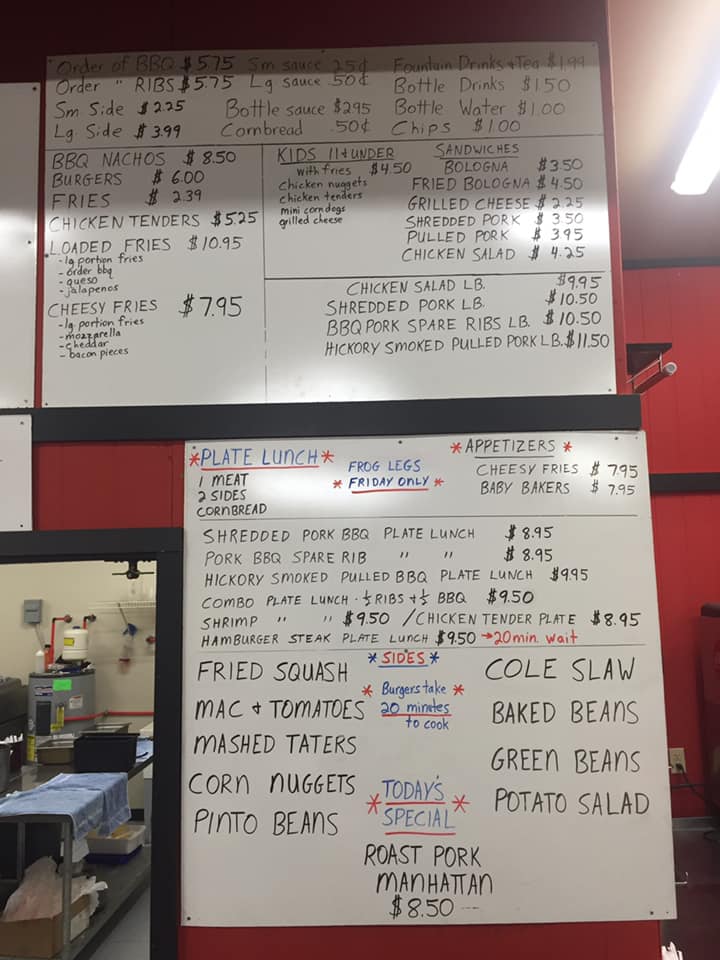 Order of BBQ $5.75 Sm sauce 25¢ Fountain Drinks + Tea $1.99
Order " RIBS $5.75 Lg sauce .50¢ Bottle Drinks $1.50
Sm Side $2.25 Bottle sauce $2.95 Bottle Water $1.00
Lg. Side $3.99 Cornbread .50¢ Chips $1.00
BBQ NACHOS $8.50
BURGERS $6.00
FRIES $2.39
CHICKEN TENDERS $5.25
LOADED FRIES $10.95
-lg portion fries
-order bbq
-queso
-jalapenos
CHEESY FRIES $7.95
-lg portion fries
-mozzarella
-cheddar
-bacon pieces
KIDS 11 + UNDER
with fries $4.50
chicken nuggets
chicken tenders
mini corndogs
grilled cheese
SANDWICHES
BOLOGNA $3.50
FRIED BOLOGNA $4.50
GRILLED CHEESE $2.25
SHREDDED PORK $3.50
PULLED PORK $3.95
CHICKEN SALAD $4.25
CHICKEN SALAD LB. $9.95
SHREDDED PORK LB. $10.50
BBQ PORK SPARE RIBS LB. $10.50
HICKORY SMOKED PULLED PORK LB. $11.50
*PLATE LUNCH*
1 MEAT
2 SIDES
CORNBREAD
FROG LEGS
* FRIDAY ONLY *
*APPETIZERS*
CHEESY FRIES $7.95
BABY BAKERS $7.95
SHREDDED PORK BBQ PLATE LUNCH $8.95
PORK BBQ SPARE RIB " " $8.95
HICKORY SMOKED PULLED BBQ PLATE LUNCH $9.95
COMBO PLATE LUNCH - ½ RIBS + ½ BBQ $9.50
SHRIMP " " $9.50 / CHICKEN TENDER PLATE $8.95
HAMBURGER STEAK PLATE LUNCH $9.50 → 20 min. wait
*SIDES*
FRIED SQUASH
MAC + TOMATOES
MASHED TATERS
CORN NUGGETS
PINTO BEANS
* Burgers take *
20 minutes
to cook
COLE SLAW
BAKED BEANS
GREEN BEANS
POTATO SALAD
* TODAY'S *
SPECIAL
ROAST PORK
MANHATTAN
$8.50 ---